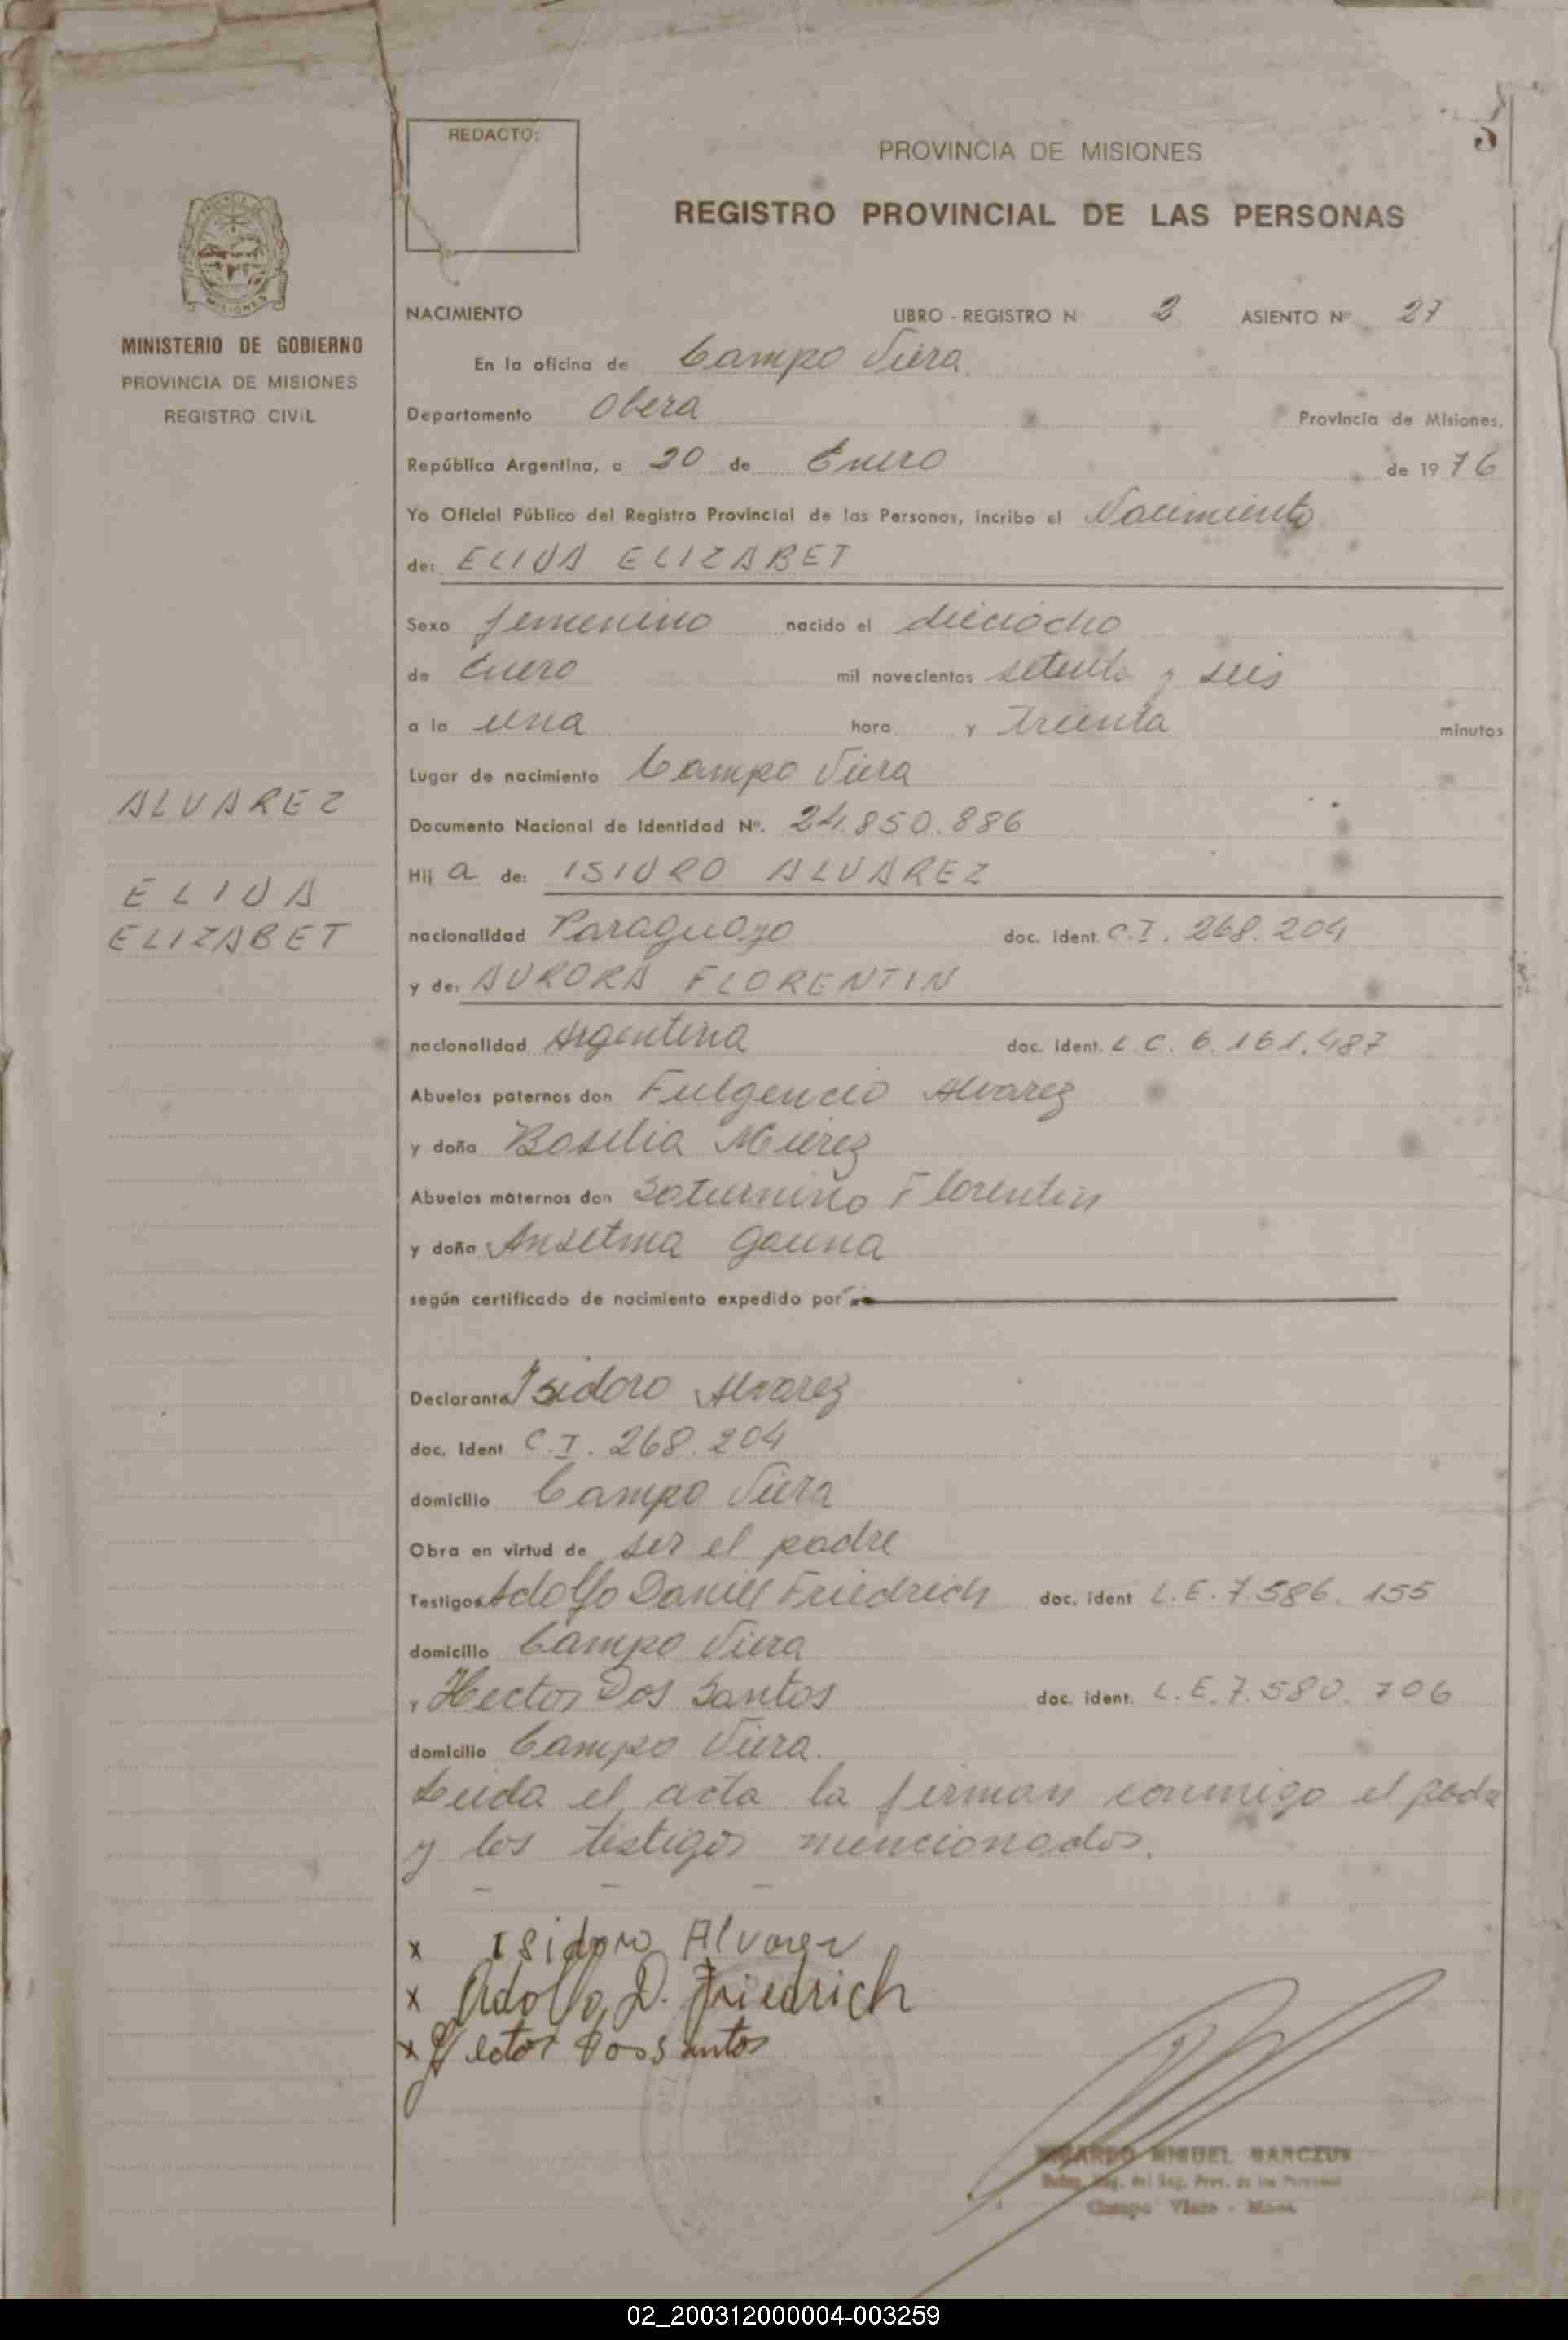 REDACTO:
PROVINCIA DE MISIONES
REGISTRO PROVINCIAL DE LAS PERSONAS
MINISTERIO DE GOBIERNO
PROVINCIA DE MISIONES
REGISTRO CIVIL
NACIMIENTO LIBRO - REGISTRO N 2 ASIENTO Nº 27
En la oficina de Campo Viera
Departamento Obera Provincia de Misiones,
República Argentina, a 20 de Enero de 1976
Yo Oficial Público del Registro Provincial de las Personas, incribo el Nacimiento
de: ELIDA ELIZABET
Sexo femenino nacido el dieciocho
de Enero mil novecientos setenta y seis
a la una hora y treinta minutos
Lugar de nacimiento Campo Viera
ALVAREZ
Documento Nacional de Identidad Nº. 24.850.886
Hij a de: ISIDRO ALVAREZ
ELIDA
ELIZABET
nacionalidad Paraguayo doc. ident. C.I. 268.204
y de: AURORA FLORENTIN
nacionalidad Argentina doc. ident. L.C. 6.161.487
Abuelos paternos don Fulgencio Alvarez
y doña Basilia
Abuelos maternos don Saturnino Florentin
y doña Anselma Gauna
según certificado de nacimiento expedido por
Declarante Isidoro Alvarez
doc. Ident C.I. 268.204
domicilio Campo Viera
Obra en virtud de ser el padre
Testigos Adolfo Daniel Friedrich doc. ident L.E. 7.586.155
domicilio Campo Viera
y Hector Dos Santos doc. ident. L.E. 7.580.706
domicilio Campo Viera.
Leida el acta la firman conmigo el padre
y los testigos mencionados.
x Isidoro Alvarez
x Adolfo D. Friedrich
x Hector Dos santos
MIGUEL
del Reg. Prov. de las Personas
Campo Viera - Mnes.
02_200312000004-003259